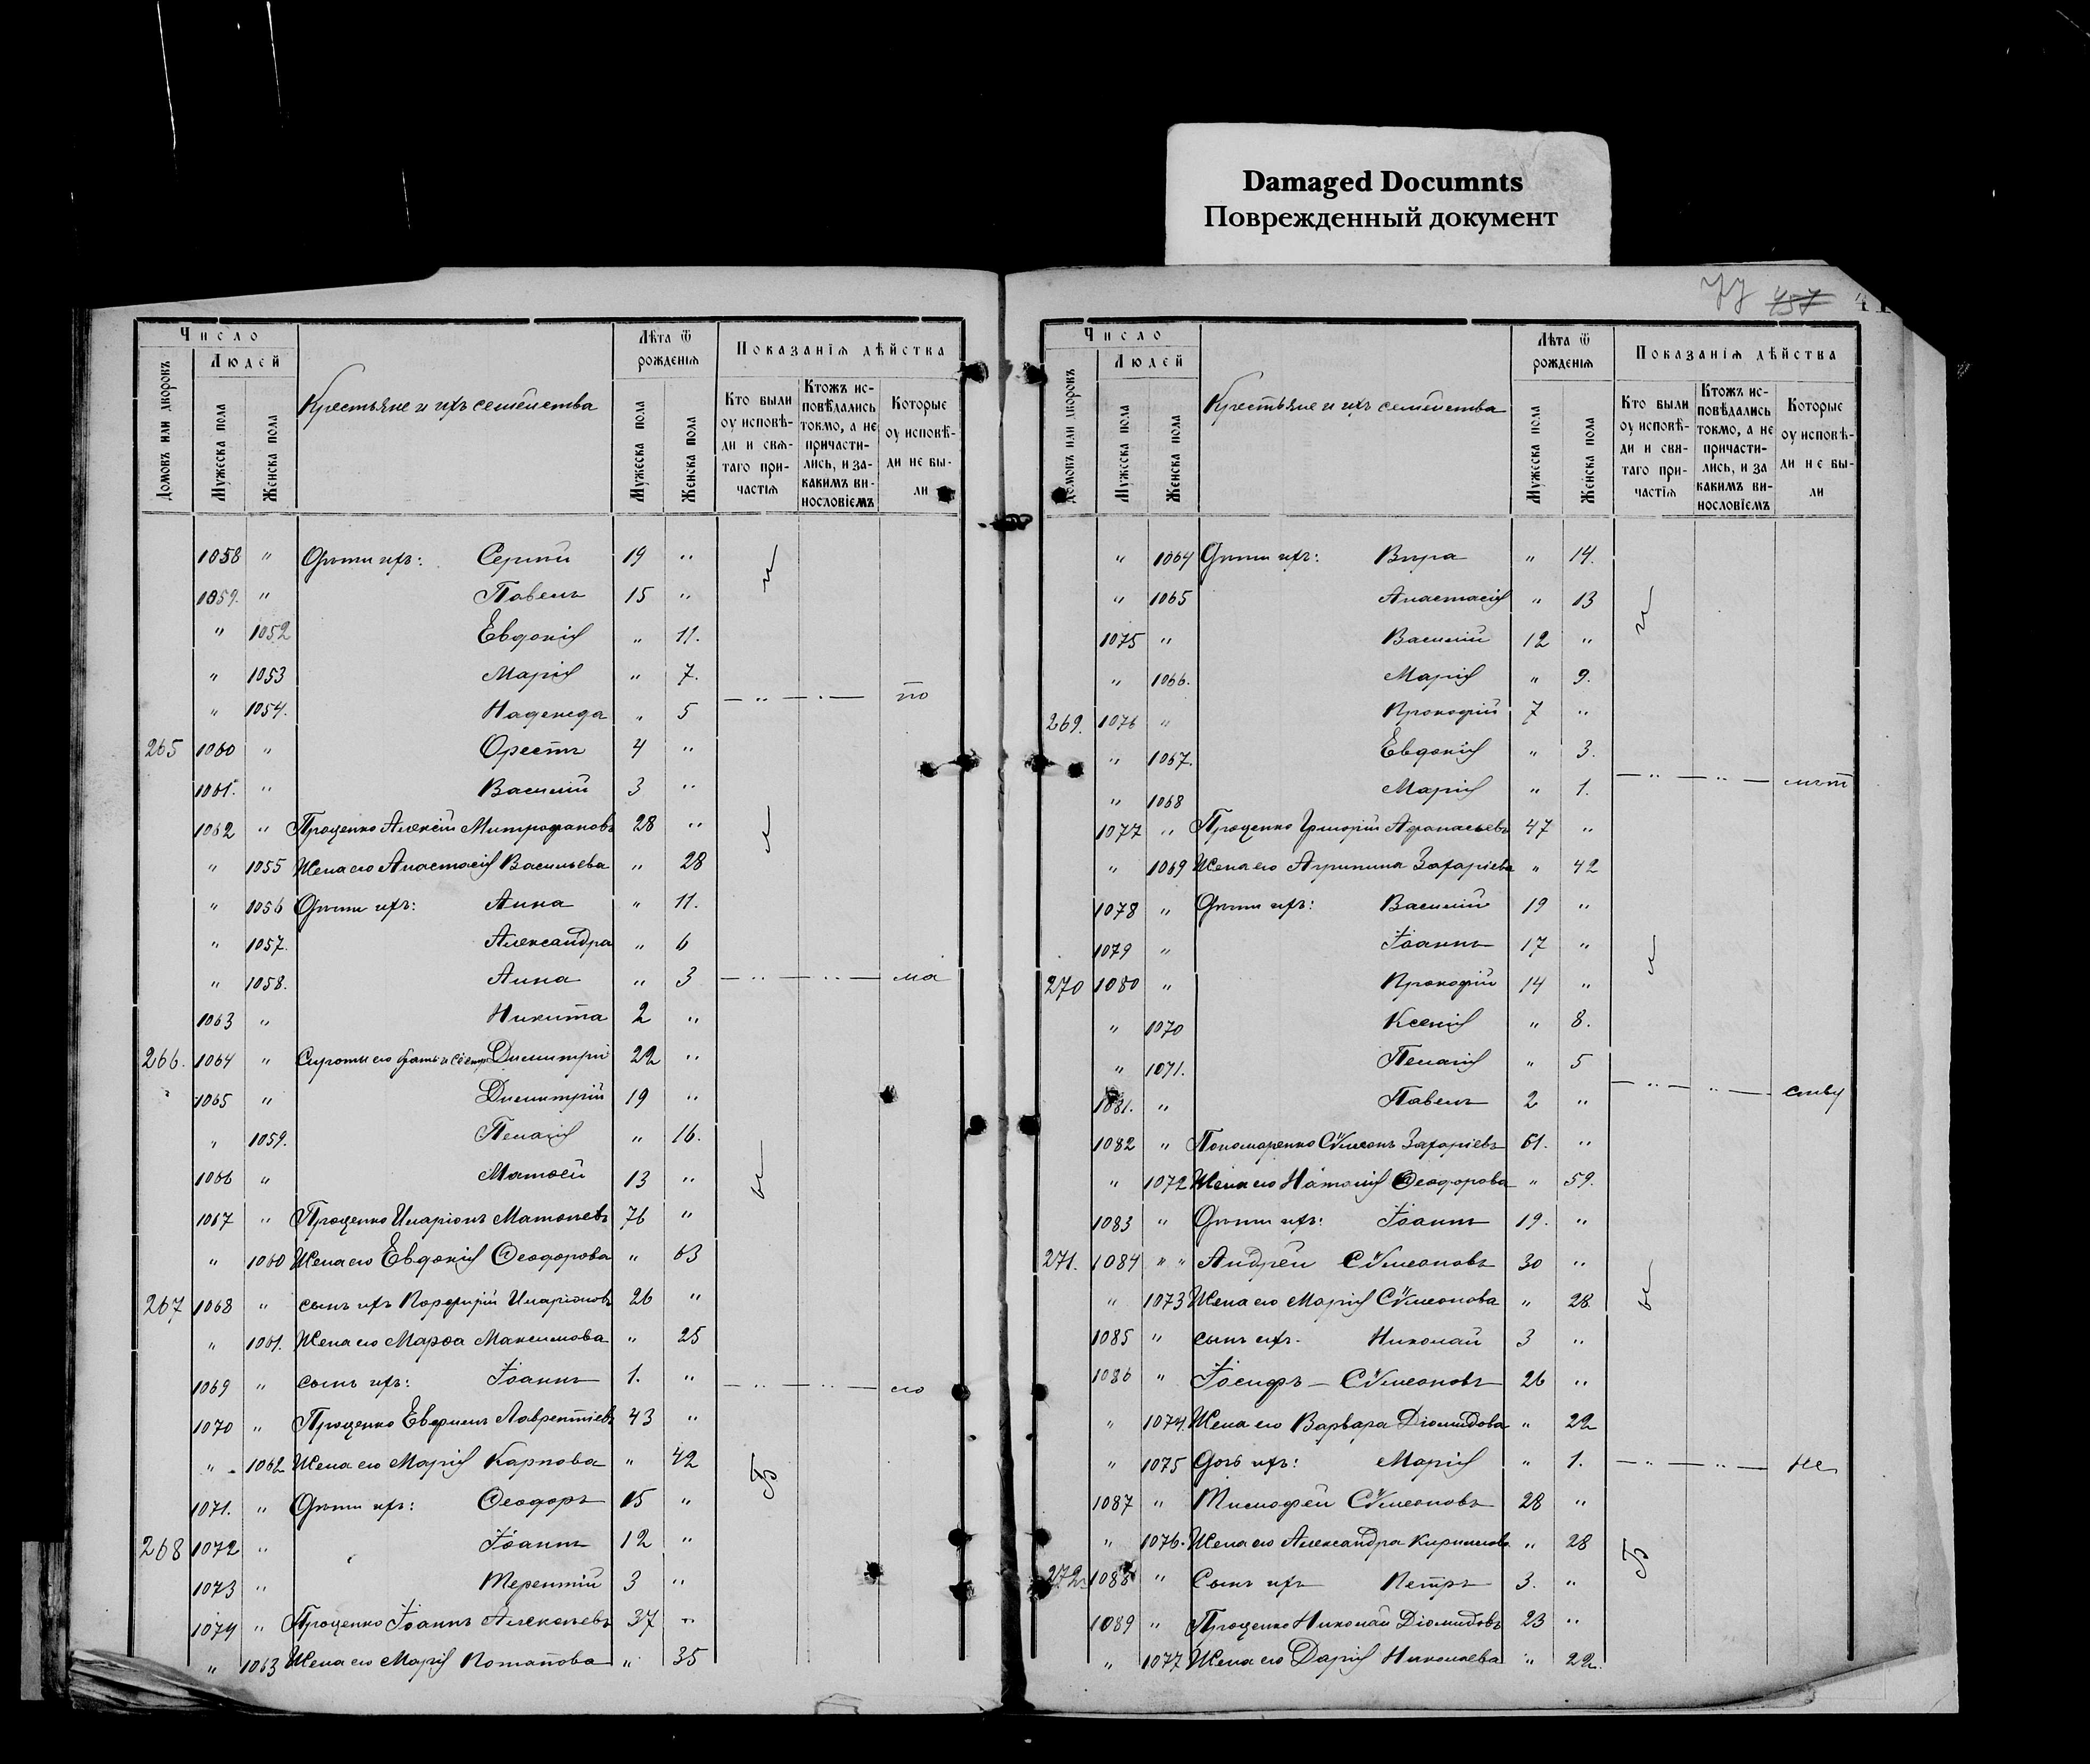 Damaged Documnts
Поврежденный документ
77 757 41
Число
Людей
Домовъ или дворовъ
Мужеска пола
Женска пола
Крестьяне и ихъ семейства
Лѣта ѿ рожденія
Мужеска пола
Женска пола
Показанія дѣйства
Кто были оу исповѣ-
ди и свя-
таго при-
частія
Ктожъ ис-
повѣдались
токмо, а не
причасти-
лись, и за-
какимъ ви-
нословіемъ
Которые
оу исповѣ-
ди не бы-
ли
1058 " Дѣти ихъ: Сергій 19 "
1059. " Павелъ 15 "
" 1052 Евдокія " 11.
" 1053 Марія " 7.
" 1054. Надежда " 5 — " — " — по
265 1060 " Орестъ 4 "
1061. " Василій 3 "
1062 " Проценко Алексій Митрофановъ 28 "
" 1055 Жена его Анастасія Васильева " 28
" 1056 Дѣти ихъ: Анна " 11.
" 1057. Александра " 6
" 1058. Анна " 3 — " — " — ма
1063 " Никита 2 "
266. 1064 " Сироты его братья и сестр Димитрій 22 "
1065 " Димитрій 19 "
" 1059. Пелагія " 16.
1066 " Матѳей 13 "
1067 " Проценко Иларіонъ Матѳеевъ 76 "
" 1060 Жена его Евдокія Ѳеодорова " 63
267 1068 " сынъ ихъ Порфирій Иларіоновъ 26 "
" 1061. Жена его Марѳа Максимова " 25
1069 " сынъ ихъ: Іоаннъ 1. " — " — " — его
1070 " Проценко Евфимъ Лаврентіевъ 43 "
" 1062 Жена его Марія Карпова " 42
1071. " Дѣти ихъ: Ѳеодоръ 15 "
268 1072 " Іоаннъ 12 "
1073 " Терентій 3 "
1074 " Проценко Іоаннъ Алексѣевъ 37 "
" 1063 Жена его Марія Потапова " 35
Число
Людей
Домовъ или дворовъ
Мужеска пола
Женска пола
Крестьяне и ихъ семейства
Лѣта ѿ рожденія
Мужеска пола
Женска пола
Показанія дѣйства
Кто были
оу исповѣ-
ди и свя-
таго при-
частія
Ктожъ ис-
повѣдались
токмо, а не
причасти-
лись, и за
какимъ ви-
нословіемъ
Которые
оу исповѣ-
ди не бы-
ли
" 1064 Дѣти ихъ: Вѣра " 14.
" 1065 Анастасія " 13
1075 " Василій 12 "
" 1066. Марія " 9.
269. 1076 " Прокофій 7 "
" 1067. Евдокія " 3.
" 1068 Марія " 1. — " — " — лѣт
1077 " Проценко Григорій Афанасьевъ 47 "
" 1069 Жена его Агрипина Захаріева " 42
1078 " Дѣти ихъ: Василій 19 "
1079 " Іоаннъ 17 "
270 1080 " Прокофій 14 "
" 1070 Ксенія " 8.
" 1071. Пелагія " 5
1081. " Павелъ 2 " — " — " — ству
1082 " Пономаренко Сѵмеонъ Захаріевъ 61. "
" 1072 Жена его Наталія Ѳеодорова " 59.
1083 " Дѣти ихъ: Іоаннъ 19. "
271. 1084 " " Андрей Сѵмеоновъ 30 "
" 1073 Жена его Марія Сѵмеонова " 28.
1085 " сынъ ихъ. Николай 3 "
1086 " Іосифъ — Сѵмеоновъ 26 "
" 1074. Жена его Варвара Діомидова " 22
" 1075 Дочь ихъ: Марія " 1. — " — " — не
1087 " Тимофей Сѵмеоновъ 28 "
" 1076. Жена его Александра Кирилова " 28
272. 1088 " Сынъ ихъ Петръ 3. "
1089 " Проценко Николай Діомидовъ 23 "
" 1077 Жена его Дарія Николаева " 22.